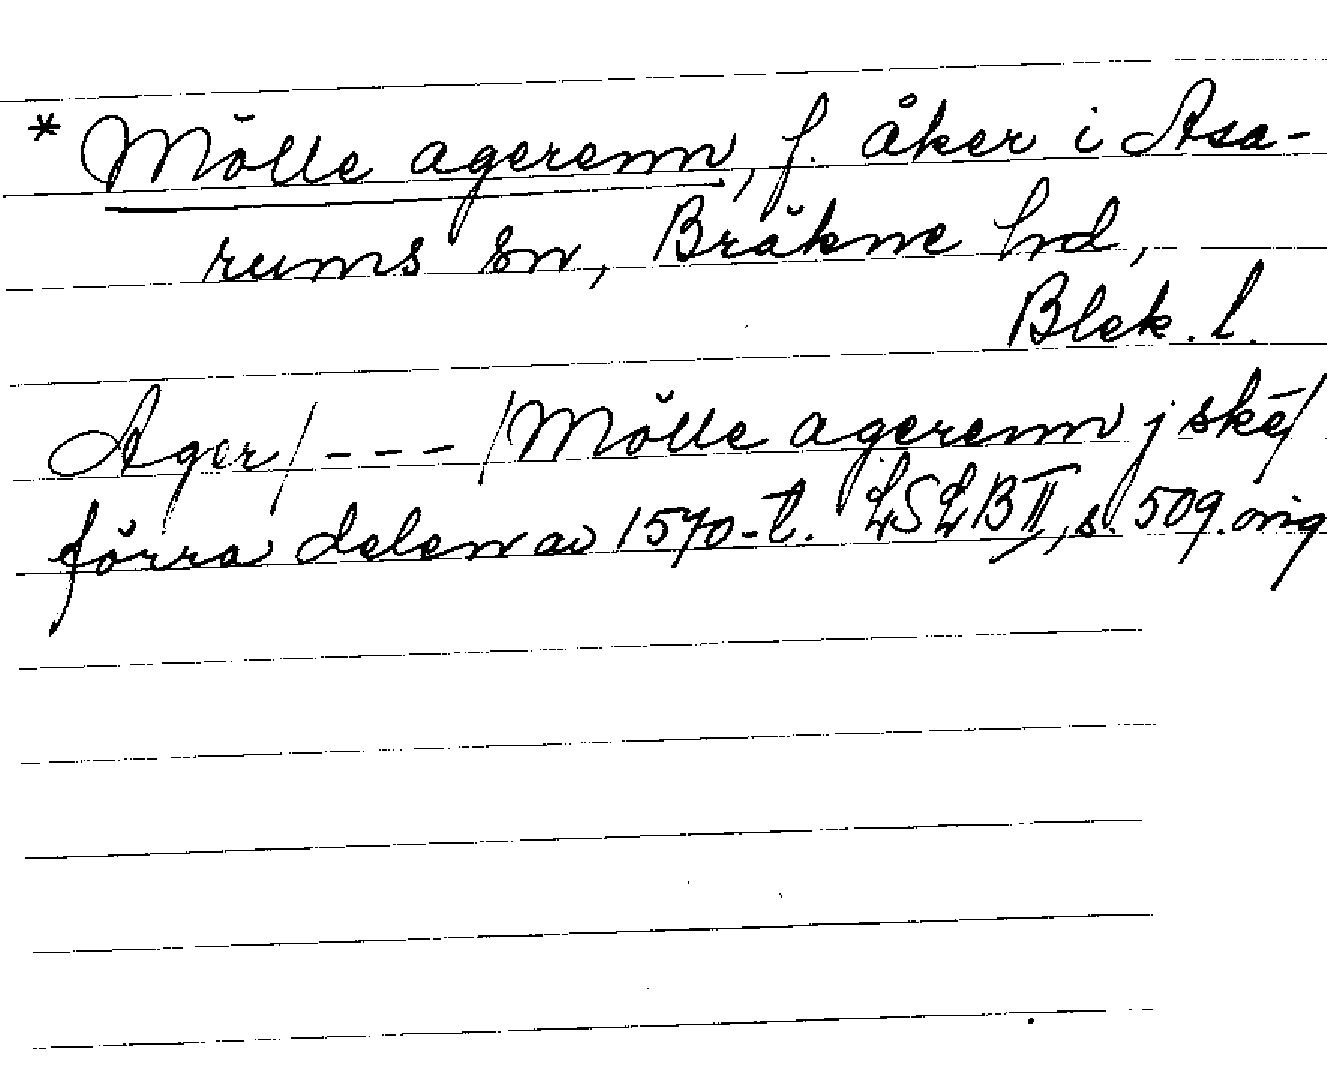 * Mölle agerenn, f. åker i Asa-
rums sn, Bräkne hd,
Blek. l.
Ager/---/Mölle agerenn j skē/
förra delen av 1570-t. LSLB II, s. 509. orig